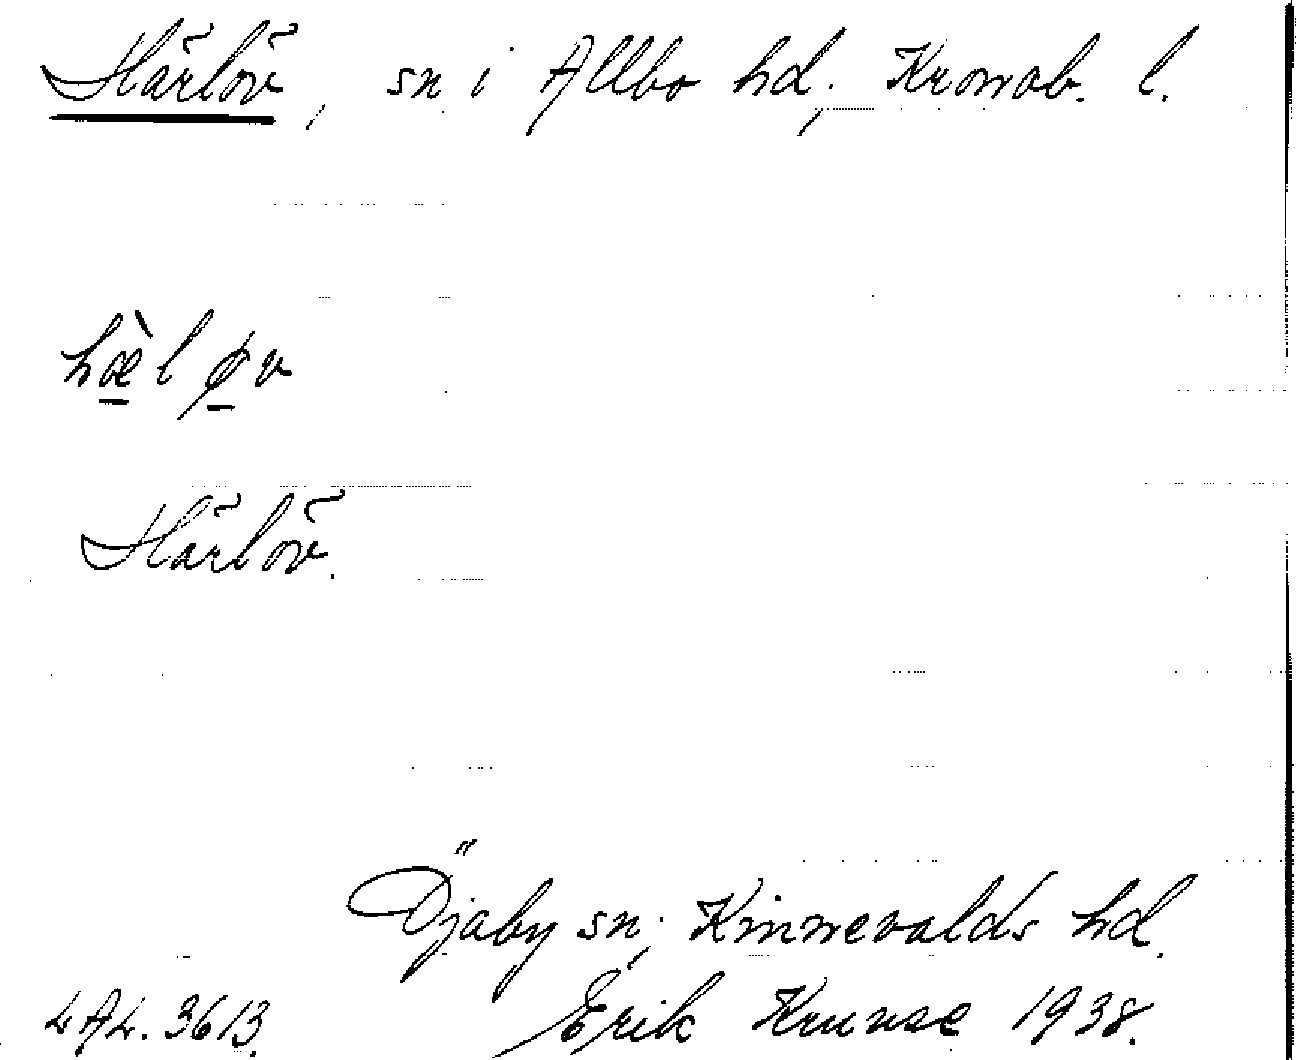 Härlöv, sn i Allbo hd, Kronob. l.
hæ̀l øv
Härlöv.
Öjaby sn, Kinnevalds hd.
LAL. 3613. Erik Kruuse 1938.